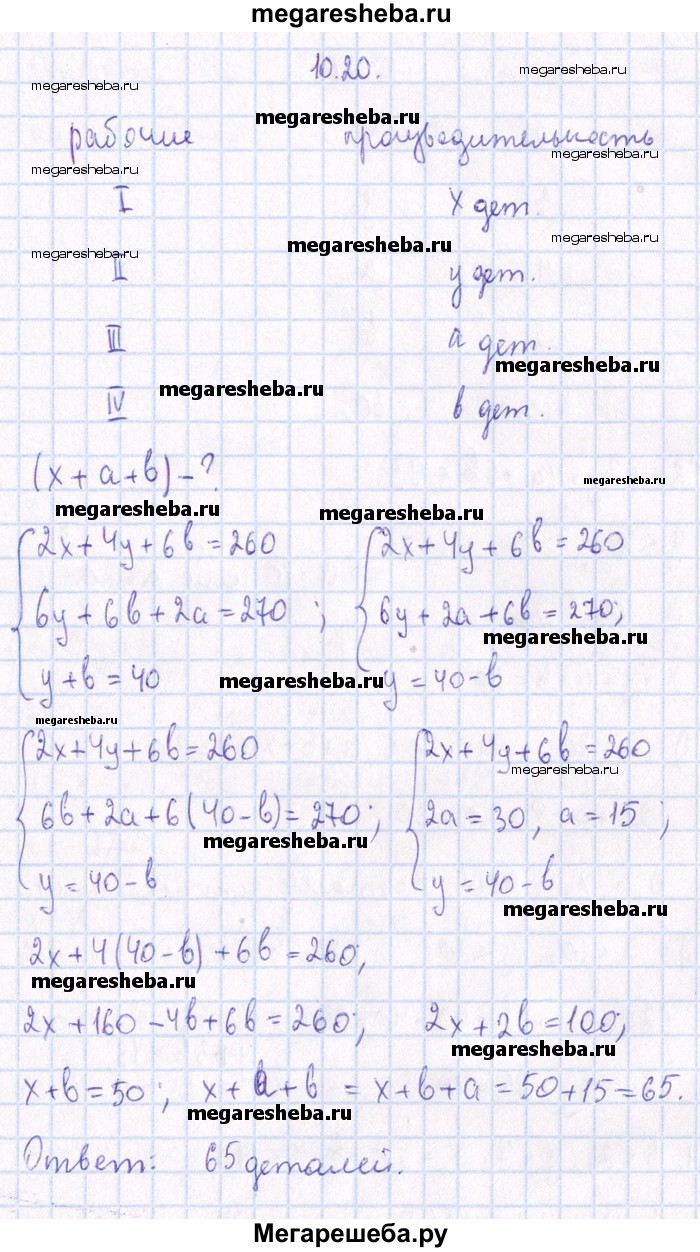 megaresheba.ru
10.20.
megaresheba.ru
megaresheba.ru
megaresheba.ru
рабочие производительность
megaresheba.ru
megaresheba.ru
I x дет.
megaresheba.ru
megaresheba.ru
megaresheba.ru
II y дет.
III a дет.
megaresheba.ru
megaresheba.ru
IV в дет.
(x + a + в) - ?
megaresheba.ru
megaresheba.ru
megaresheba.ru
2x + 4y + 6в = 260 2x + 4y + 6в = 260
6y + 6в + 2a = 270 ; 6y + 2a + 6в = 270;
megaresheba.ru
y + в = 40 megaresheba.ru y = 40 - в
megaresheba.ru
2x + 4y + 6в = 260 2x + 4y + 6в = 260
megaresheba.ru
6в + 2a + 6(40 - в) = 270; 2a = 30, a = 15 ;
megaresheba.ru
y = 40 - в y = 40 - в
megaresheba.ru
2x + 4(40 - в) + 6в = 260;
megaresheba.ru
2x + 160 - 4в + 6в = 260; 2x + 2в = 100;
megaresheba.ru
x + в = 50 ; x + a + в = x + в + a = 50 + 15 = 65.
megaresheba.ru
Ответ: 65 деталей.
megaresheba.ru
Мегарешеба.ру